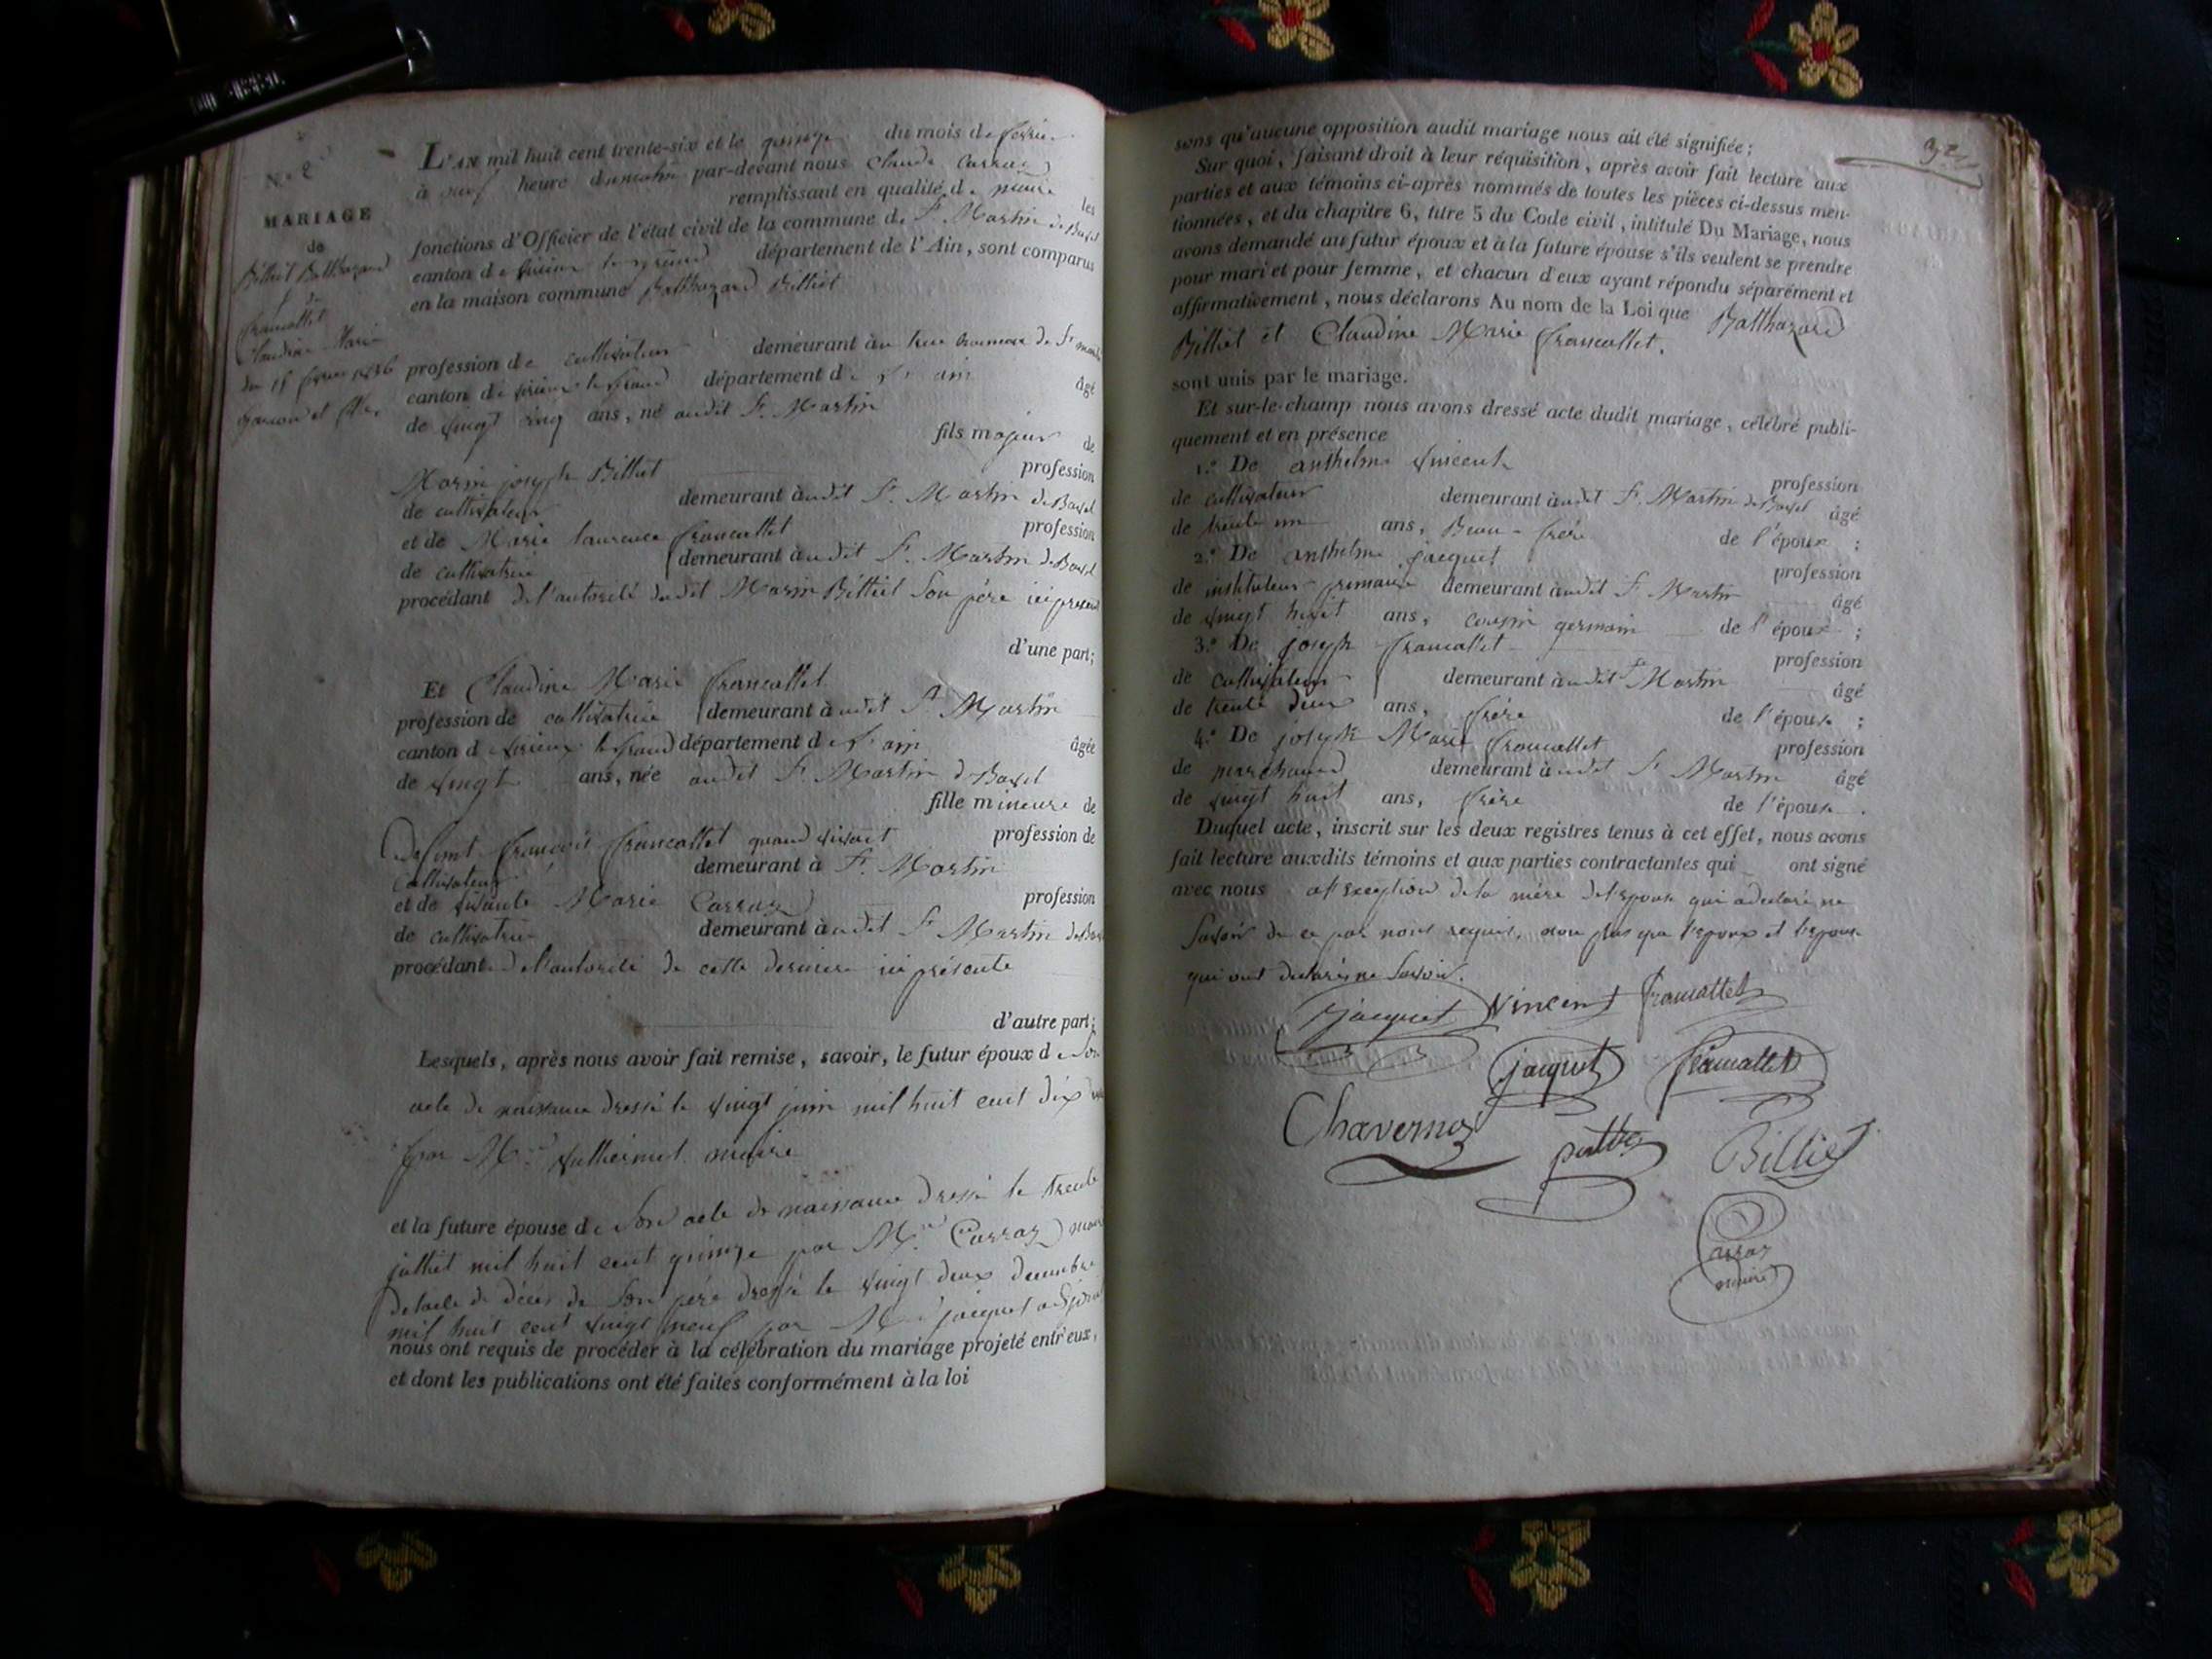 N.° 2
MARIAGE
de
Billiet Balthazard
&
francallet
Claudine Marie
du 15 février 1836
garçon et fille.
L'AN mil huit cent trente-six et le quinze du mois de février
à neuf heure du matin par-devant nous Claude Carraz
remplissant en qualité de maire les
fonctions d'Officier de l'état civil de la commune de St Martin de Bavel
canton de virieux le grand département de l'Ain, sont comparus
en la maison commune Balthazard Billiet
profession de cultivateur demeurant à commune de St Martin
canton de virieux le grand département de l'ain âgé
de vingt cinq ans, né audit St. Martin
fils majeur de
Marin joseph Billiet profession
de cultivateur demeurant à udit St. Martin de Bavel
et de Marie laurence francallet profession
de cultivatrice demeurant à udit St. Martin de Bavel
procédant de l'autorité dudit Marin Billiet Son père ici présent
d'une part;
Et Claudine Marie francallet
profession de cultivatrice demeurant à udit St Martin
canton de virieux le grand département de l'ain âgée
de vingt ans, née audit St Martin de Bavel
fille mineure de
Defunt françois francallet quand vivait profession de
cultivateur demeurant à St. Martin
et de vivante Marie Carraz profession
de cultivatrice demeurant à udit St Martin de Bavel
procédant de l'autorité de cette derniere ici présente
d'autre part;
Lesquels, après nous avoir fait remise, savoir, le futur époux de Son
acte de naissance dressé le vingt juin mil huit cent dix
par Mr. maire
et la future épouse de Son acte de naissance dressé le trente
juillet mil huit cent quinze par Mr. Carraz maire
de l'acte de décès de Son père dressé le vingt deux decembre
mil huit cent vingt neuf par Mr jacquet adjoint
nous ont requis de procéder à la célébration du mariage projeté entr'eux,
et dont les publications ont été faites conformément à la loi
32
sans qu'aucune opposition audit mariage nous ait été signifiée;
Sur quoi, faisant droit à leur réquisition, après avoir fait lecture aux
parties et aux témoins ci-après nommés de toutes les pièces ci-dessus men-
tionnées, et du chapitre 6, titre 5 du Code civil, intitulé Du Mariage, nous
avons demandé au futur époux et à la future épouse s'ils veulent se prendre
pour mari et pour femme, et chacun d'eux ayant répondu séparément et
affirmativement, nous déclarons Au nom de la Loi que Balthazard
Billiet et Claudine Marie francallet.
sont unis par le mariage.
Et sur-le-champ nous avons dressé acte dudit mariage, célébré publi-
quement et en présence
1.° De anthelme vincent profession
de cultivateur demeurant à udit St Martin de Bavel âgé
de trente un ans, Beau-frère de l'époux ;
2.° De anthelme jacquet profession
de instituteur primaire demeurant à udit St Martin âgé
de vingt huit ans, cousin germain de l'époux ;
3.° De joseph francallet profession
de cultivateur demeurant à udit St Martin âgé
de trente deux ans, frère de l'épouse ;
4.° De joseph Marie francallet profession
de marchand demeurant à udit St Martin âgé
de vingt huit ans, frère de l'épouse .
Duquel acte, inscrit sur les deux registres tenus à cet effet, nous avons
fait lecture auxdits témoins et aux parties contractantes qui ont signé
avec nous à l'exception de la mère de l'épouse qui a declaré ne
Savoir de ce par nous requis, non plus que l'époux et l'epouse
qui ont declarés ne Savoir.
jacquet vincent francallet
jacquet francallet
Chavernoz Billiet
Carraz
maire